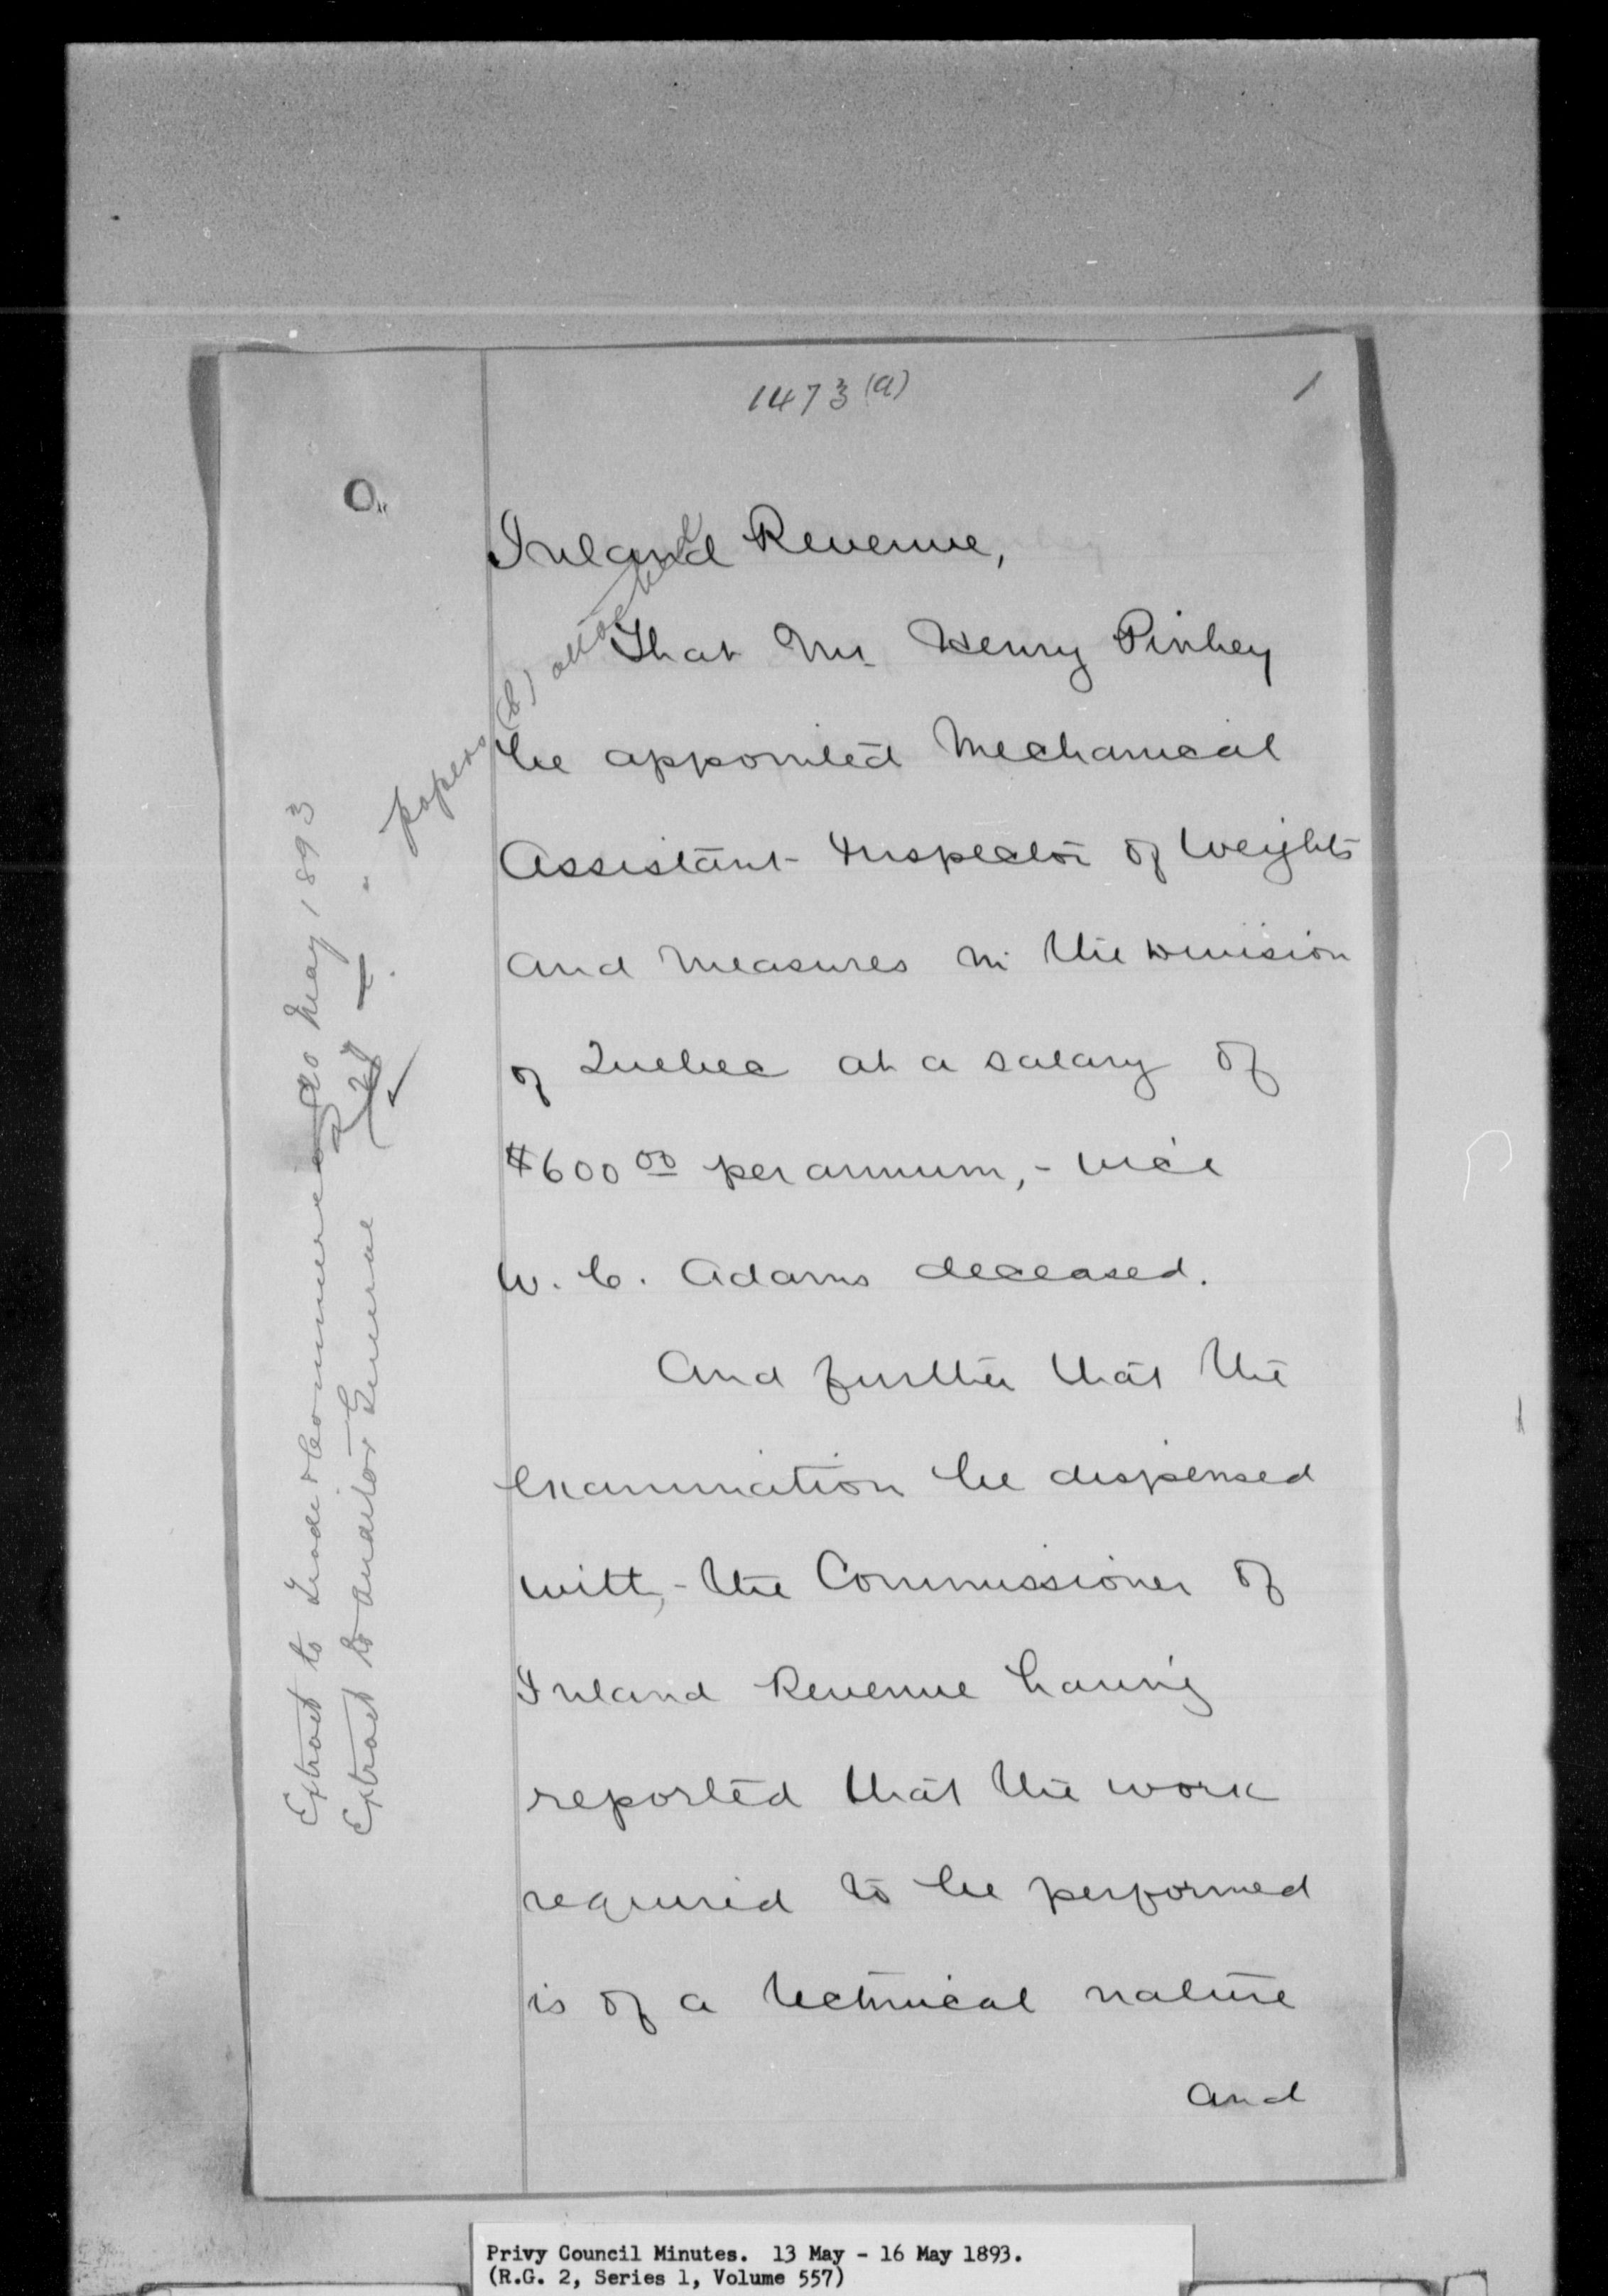 1473 (a)
1
O.
Inland Revenue,
That Mr. Henry Pinhey
be appointed Mechanical
Assistant Inspector of Weights
and Measures in the Division
of Quebec at a salary of
$600 00 per annum, - vice
W. C. Adams deceased.
And further that the
examination be dispensed
with, - the Commissioner of
Inland Revenue having
reported that the work
required to be performed
is of a technical nature
and
Extract to Trade & Commerce 20 May 1893
Extract to Auditor General
papers (b) attached
Privy Council Minutes. 13 May - 16 May 1893.
(R.G. 2, Series 1, Volume 557)